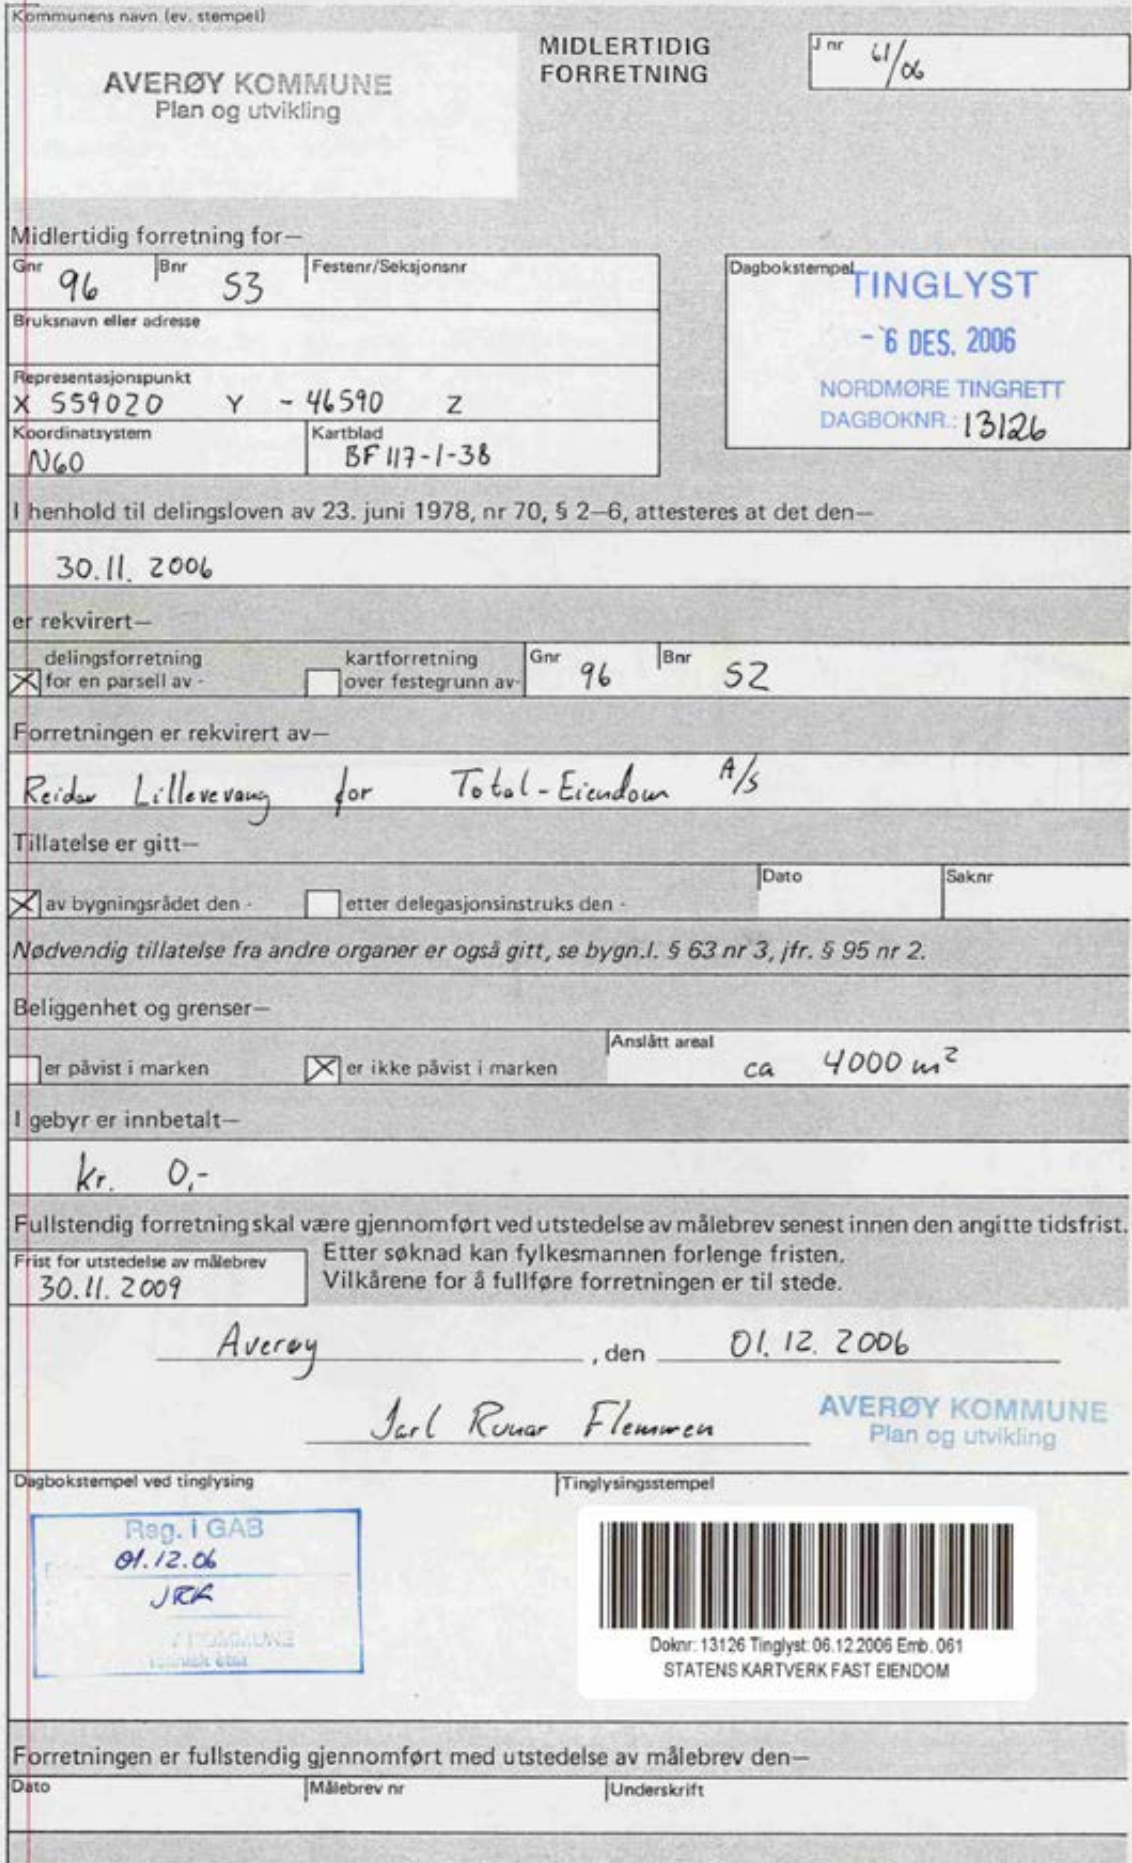 Kommunens navn (ev. stempel)
AVERØY KOMMUNE
Plan og utvikling
MIDLERTIDIG
FORRETNING
J nr 61/06
Midlertidig forretning for—
Gnr 96 Bnr 53 Festenr/Seksjonsnr
Bruksnavn eller adresse
Representasjonspunkt
X 559020 Y - 46590 Z
Koordinatsystem N60 Kartblad BF 117-1-38
Dagbokstempel
TINGLYST
- 6 DES. 2006
NORDMØRE TINGRETT
DAGBOKNR.: 13126
I henhold til delingsloven av 23. juni 1978, nr 70, § 2–6, attesteres at det den—
30.11. 2006
er rekvirert—
delingsforretning
for en parsell av -
kartforretning
over festegrunn av-
Gnr 96 Bnr 52
Forretningen er rekvirert av—
Reidar Lillevevang for Total-Eiendom A/S
Tillatelse er gitt—
av bygningsrådet den - etter delegasjonsinstruks den - Dato Saknr
Nødvendig tillatelse fra andre organer er også gitt, se bygn.l. § 63 nr 3, jfr. § 95 nr 2.
Beliggenhet og grenser—
er påvist i marken er ikke påvist i marken Anslått areal ca 4000 m²
I gebyr er innbetalt—
kr. 0,-
Fullstendig forretning skal være gjennomført ved utstedelse av målebrev senest innen den angitte tidsfrist.
Frist for utstedelse av målebrev
30.11. 2009
Etter søknad kan fylkesmannen forlenge fristen.
Vilkårene for å fullføre forretningen er til stede.
Averøy , den 01.12. 2006
Jarl Runar Flemmen
AVERØY KOMMUNE
Plan og utvikling
Dagbokstempel ved tinglysing
Reg. i GAB
01.12.06
JRF
Tinglysingsstempel
Doknr: 13126 Tinglyst: 06.12.2006 Emb. 061
STATENS KARTVERK FAST EIENDOM
Forretningen er fullstendig gjennomført med utstedelse av målebrev den—
Dato Målebrev nr Underskrift